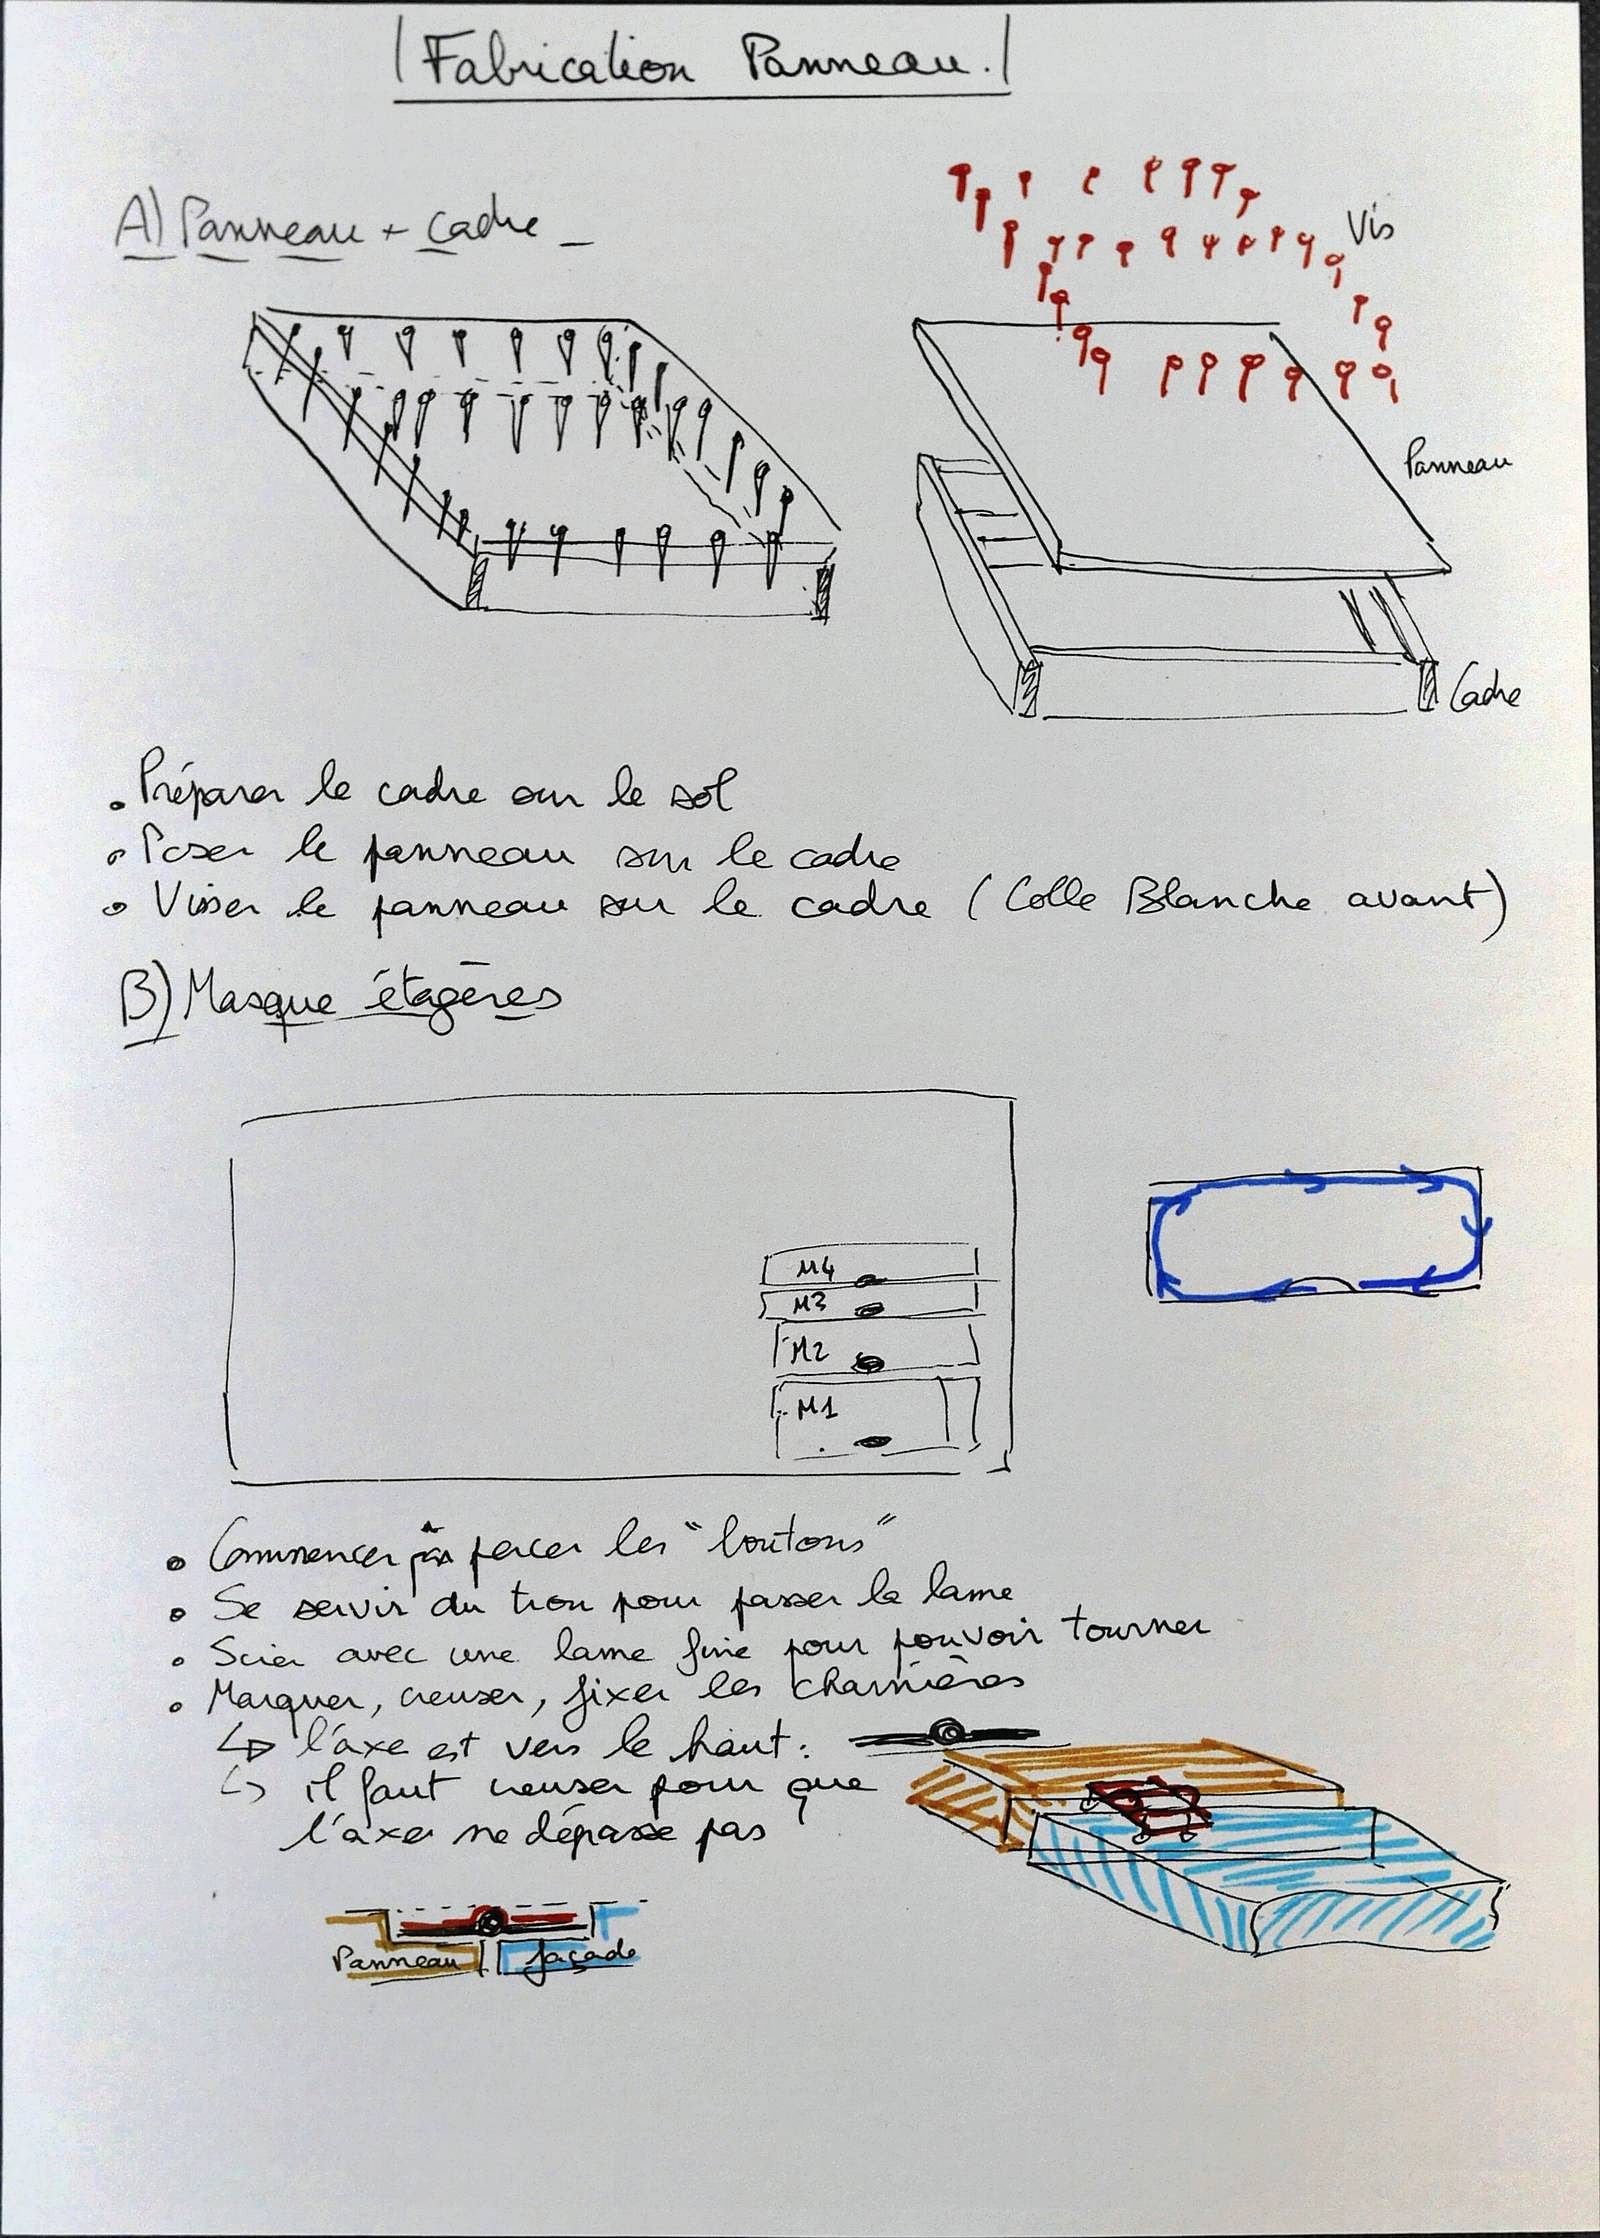 Fabrication Panneau.
A) Panneau + Cadre
Vis
Panneau
Cadre
• Préparer le cadre sur le sol
• Poser le panneau sur le cadre
• Visser le panneau sur le cadre (Colle Blanche avant)
B) Masque étagères
M4
M3
M2
M1
• Commencer à percer les "boutons"
• Se servir du trou pour passer la lame
• Scier avec une lame fine pour pouvoir tourner
• Marquer, creuser, fixer les charnières
↳ l'axe est vers le haut :
↳ il faut creuser pour que
l'axe ne dépasse pas
Panneau façade